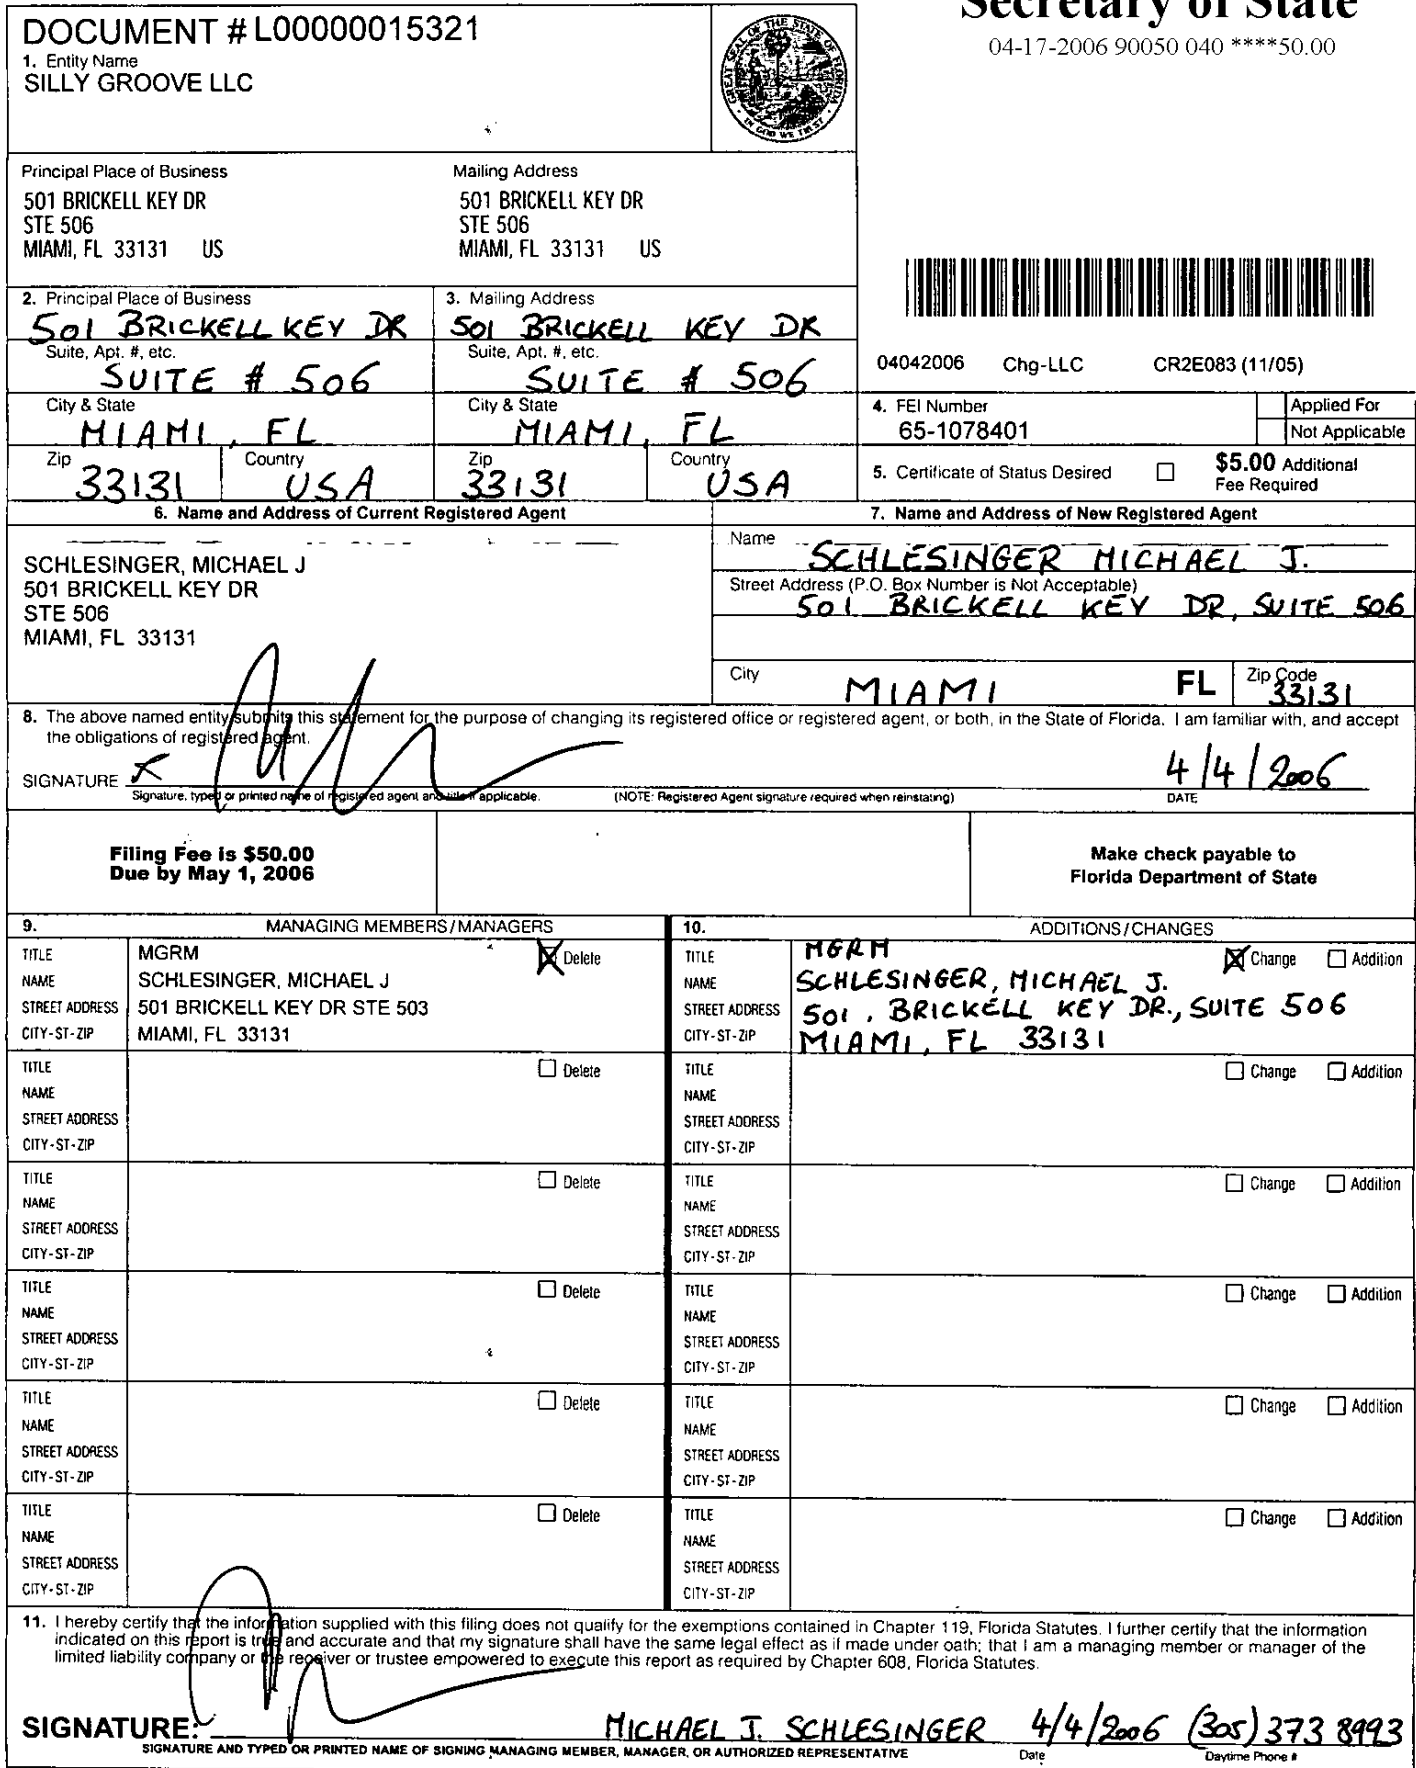 Secretary of State
04-17-2006 90050 040 ****50.00
DOCUMENT # L00000015321
1. Entity Name
SILLY GROOVE LLC
GREAT SEAL OF THE STATE OF FLORIDA
IN GOD WE TRUST
Principal Place of Business
501 BRICKELL KEY DR
STE 506
MIAMI, FL 33131 US
Mailing Address
501 BRICKELL KEY DR
STE 506
MIAMI, FL 33131 US
2. Principal Place of Business
501 BRICKELL KEY DR
Suite, Apt. #, etc.
SUITE # 506
City & State
MIAMI, FL
Zip
33131
Country
USA
3. Mailing Address
501 BRICKELL KEY DR
Suite, Apt. #, etc.
SUITE # 506
City & State
MIAMI, FL
Zip
33131
Country
USA
04042006 Chg-LLC CR2E083 (11/05)
4. FEI Number
65-1078401
Applied For
Not Applicable
5. Certificate of Status Desired
$5.00 Additional
Fee Required
6. Name and Address of Current Registered Agent
SCHLESINGER, MICHAEL J
501 BRICKELL KEY DR
STE 506
MIAMI, FL 33131
7. Name and Address of New Registered Agent
Name
SCHLESINGER MICHAEL J.
Street Address (P.O. Box Number is Not Acceptable)
501 BRICKELL KEY DR, SUITE 506
City
MIAMI
FL
Zip Code
33131
8. The above named entity submits this statement for the purpose of changing its registered office or registered agent, or both, in the State of Florida. I am familiar with, and accept
the obligations of registered agent.
SIGNATURE X
4/4/2006
Signature, typed or printed name of registered agent and title if applicable.
(NOTE: Registered Agent signature required when reinstating)
DATE
Filing Fee is $50.00
Due by May 1, 2006
Make check payable to
Florida Department of State
9. MANAGING MEMBERS/MANAGERS
TITLE MGRM Delete
NAME SCHLESINGER, MICHAEL J
STREET ADDRESS 501 BRICKELL KEY DR STE 503
CITY-ST-ZIP MIAMI, FL 33131
TITLE Delete
NAME
STREET ADDRESS
CITY-ST-ZIP
TITLE Delete
NAME
STREET ADDRESS
CITY-ST-ZIP
TITLE Delete
NAME
STREET ADDRESS
CITY-ST-ZIP
TITLE Delete
NAME
STREET ADDRESS
CITY-ST-ZIP
TITLE Delete
NAME
STREET ADDRESS
CITY-ST-ZIP
10. ADDITIONS/CHANGES
TITLE MGRM Change Addition
NAME SCHLESINGER, MICHAEL J.
STREET ADDRESS 501. BRICKELL KEY DR., SUITE 506
CITY-ST-ZIP MIAMI, FL 33131
TITLE Change Addition
NAME
STREET ADDRESS
CITY-ST-ZIP
TITLE Change Addition
NAME
STREET ADDRESS
CITY-ST-ZIP
TITLE Change Addition
NAME
STREET ADDRESS
CITY-ST-ZIP
TITLE Change Addition
NAME
STREET ADDRESS
CITY-ST-ZIP
TITLE Change Addition
NAME
STREET ADDRESS
CITY-ST-ZIP
11. I hereby certify that the information supplied with this filing does not qualify for the exemptions contained in Chapter 119, Florida Statutes. I further certify that the information
indicated on this report is true and accurate and that my signature shall have the same legal effect as if made under oath; that I am a managing member or manager of the
limited liability company or the receiver or trustee empowered to execute this report as required by Chapter 608, Florida Statutes.
SIGNATURE: MICHAEL J. SCHLESINGER 4/4/2006 (305) 373 8993
SIGNATURE AND TYPED OR PRINTED NAME OF SIGNING MANAGING MEMBER, MANAGER, OR AUTHORIZED REPRESENTATIVE
Date
Daytime Phone #